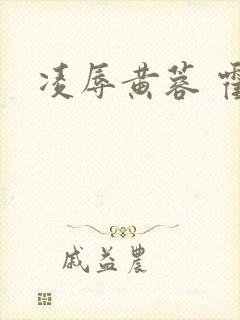 凌辱黄蓉
戚益農